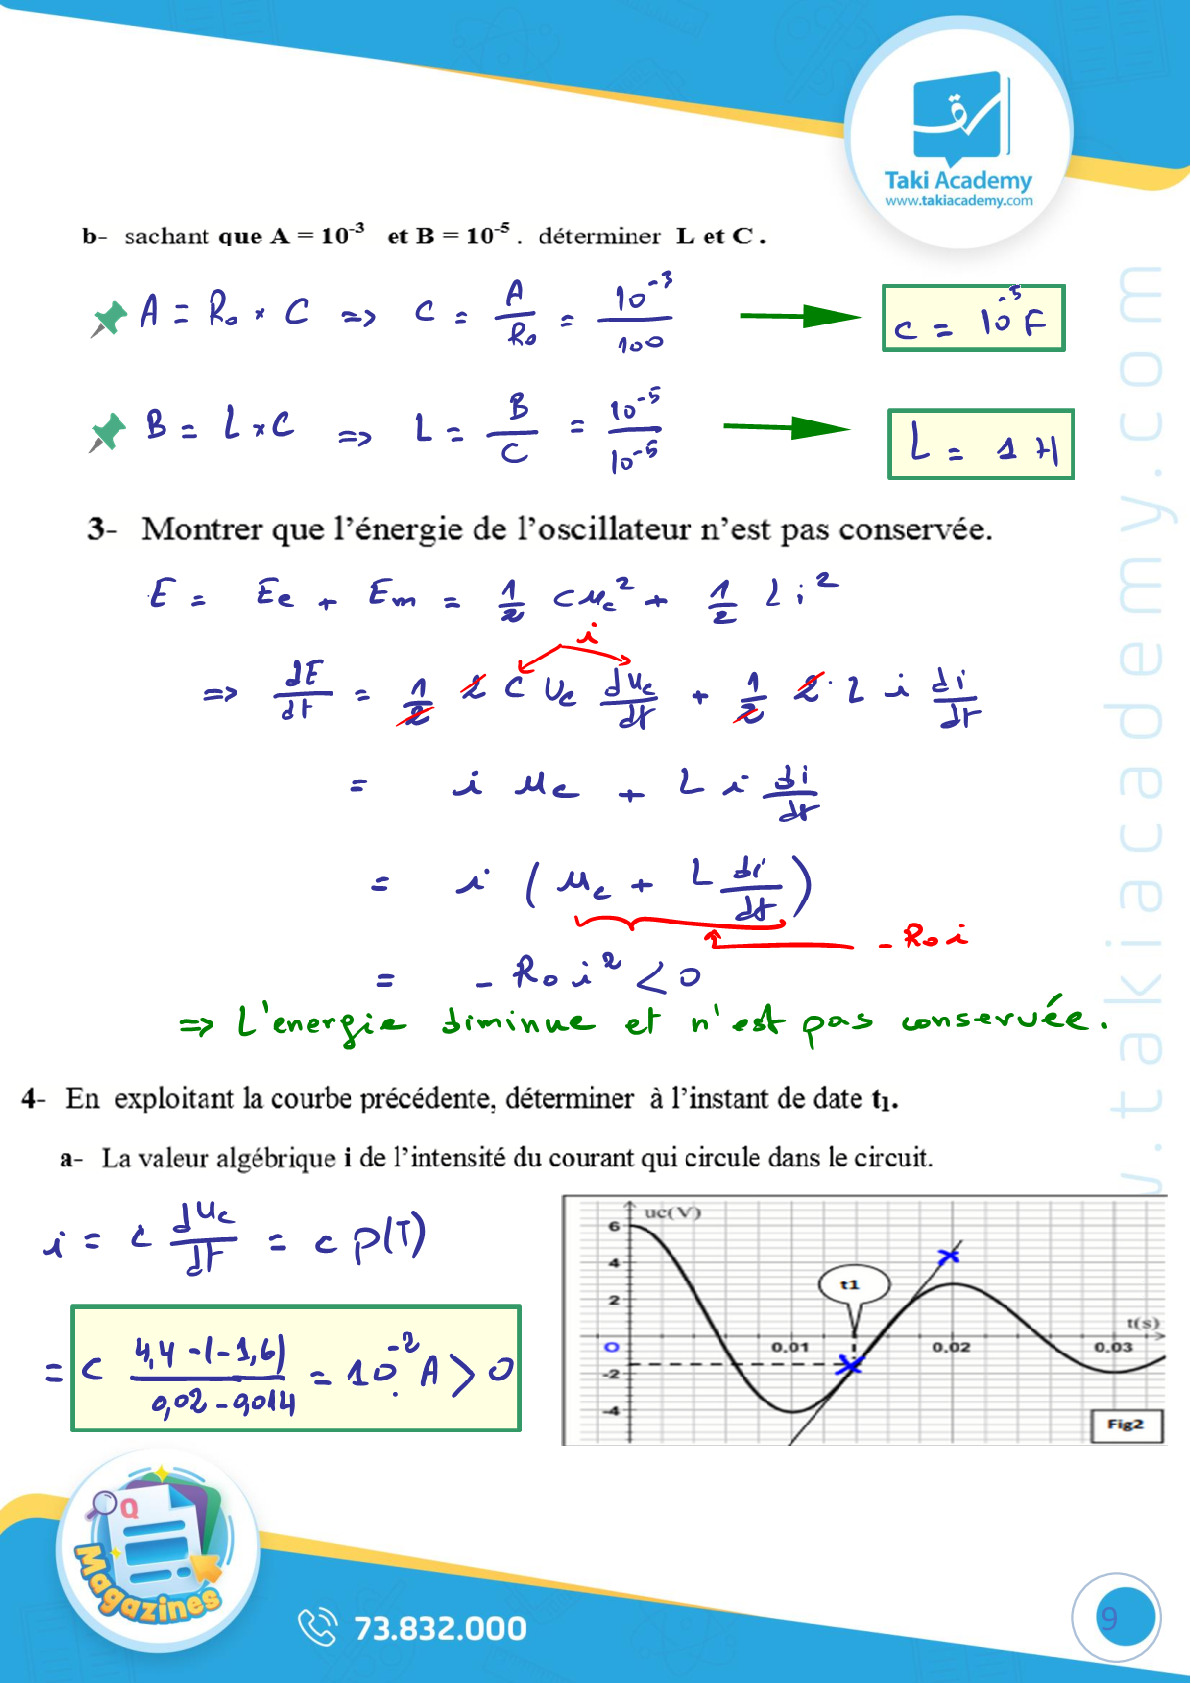 Taki Academy
www.takiacademy.com
b- sachant que A = 10⁻³ et B = 10⁻⁵ . déterminer L et C .
A = R₀ × C => C = A/R₀ = 10⁻³/100
C = 10⁻⁵ F
B = L × C => L = B/C = 10⁻⁵/10⁻⁵
L = 1 H
3- Montrer que l’énergie de l’oscillateur n’est pas conservée.
E = Ee + Em = 1/2 C uc² + 1/2 L i²
i
=> dE/dt = 1/2 2 C uc duc/dt + 1/2 2 · L i di/dt
= i uc + L i di/dt
= i (uc + L di/dt)
- R₀ i
= - R₀ i² < 0
=> L'énergie diminue et n'est pas conservée.
4- En exploitant la courbe précédente, déterminer à l’instant de date t₁.
a- La valeur algébrique i de l’intensité du courant qui circule dans le circuit.
i = C duc/dt = C p(T)
= C (4,4 - (-1,6))/(0,02 - 0,014) = 10⁻² A > 0
uc(V)
6
4
t1
2
t(s)
O 0.01 0.02 0.03
-2
-4
Fig2
w.takiacademy.com
Q
Magazines
73.832.000
9